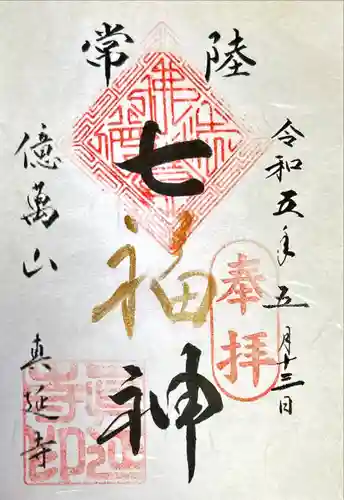 常陸
七福神
令和五年五月十三日
奉拝
億萬山
真延寺